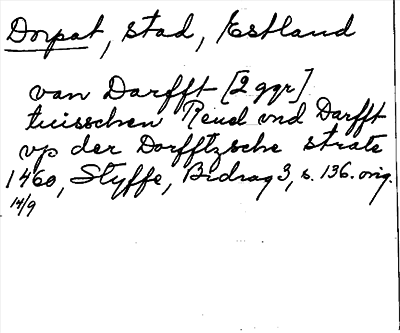 Dorpat, stad, Estland
van Darfft [2 ggr]
tuisschen Reuel vnd Darfft
vp der Dorfftzsche strate
1460, Styffe, Bidrag 3, s. 136. orig.
14/9